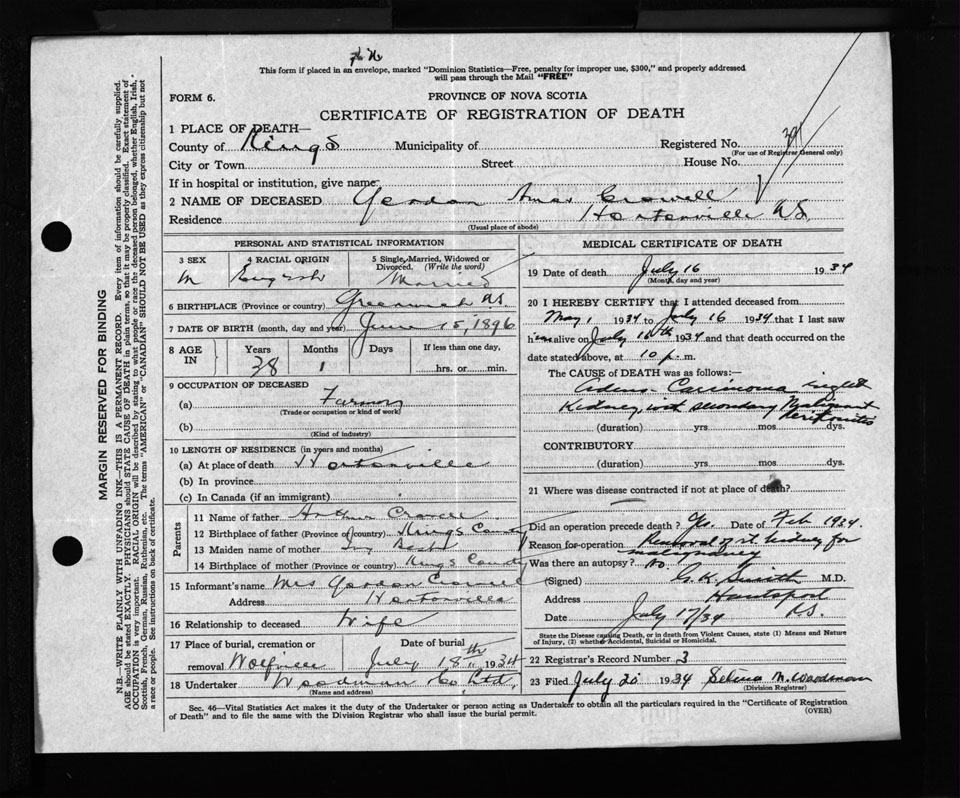 This form if placed in an envelope, marked "Dominion Statistics—Free, penalty for improper use, $300," and properly addressed
will pass through the Mail "FREE"
FORM 6.
PROVINCE OF NOVA SCOTIA
CERTIFICATE OF REGISTRATION OF DEATH
1 PLACE OF DEATH—
County of Kings Municipality of Registered No.
(For use of Registrar General only)
City or Town Street House No.
If in hospital or institution, give name
2 NAME OF DECEASED Gordon Amos Crowell
Residence Hortonville N.S.
(Usual place of abode)
PERSONAL AND STATISTICAL INFORMATION
3 SEX 4 RACIAL ORIGIN 5 Single, Married, Widowed or Divorced. (Write the word)
M English Married
6 BIRTHPLACE (Province or country) Greenwich N.S.
7 DATE OF BIRTH (month, day and year) June 15, 1896
8 AGE IN Years Months Days If less than one day,
38 1 hrs. or min.
9 OCCUPATION OF DECEASED
(a) Farmer
(Trade or occupation or kind of work)
(b)
(Kind of industry)
10 LENGTH OF RESIDENCE (in years and months)
(a) At place of death Hortonville
(b) In province
(c) In Canada (if an immigrant)
Parents
11 Name of father Arthur Crowell
12 Birthplace of father (Province or country) Kings County
13 Maiden name of mother
14 Birthplace of mother (Province or country) Kings County
15 Informant's name Mrs Gordon Crowell
Address Hortonville
16 Relationship to deceased Wife
17 Place of burial, cremation or removal Wolfville Date of burial July 18th 1934
18 Undertaker Woodman Co Ltd.
(Name and address)
MEDICAL CERTIFICATE OF DEATH
19 Date of death July 16 1934
(Month, day and year)
20 I HEREBY CERTIFY that I attended deceased from
May 1 1934 to July 16 1934 that I last saw
him alive on July 16th 1934 and that death occurred on the
date stated above, at 10 p. m.
The CAUSE of DEATH was as follows:—
Adeno-Carcinoma right
Kidney, with secondary Malignant
Peritonitis
(duration) yrs mos dys.
CONTRIBUTORY
(duration) yrs mos dys.
21 Where was disease contracted if not at place of death?
Did an operation precede death? Yes. Date of Feb 1934
Reason for operation Removal of rt. kidney for
malignancy
Was there an autopsy? No.
(Signed) G.K. Smith M.D.
Address Hantsport
N.S.
Date July 17/34
State the Disease causing Death, or in death from Violent Causes, state (1) Means and Nature
of Injury, (2) whether Accidental, Suicidal or Homicidal.
22 Registrar's Record Number 3
23 Filed July 20 1934 Selena M. Woodman
(Division Registrar)
Sec. 46—Vital Statistics Act makes it the duty of the Undertaker or person acting as Undertaker to obtain all the particulars required in the "Certificate of Registration
of Death" and to file the same with the Division Registrar who shall issue the burial permit.
(OVER)
MARGIN RESERVED FOR BINDING
N.B.—WRITE PLAINLY WITH UNFADING INK—THIS IS A PERMANENT RECORD. Every item of information should be carefully supplied.
AGE should be stated EXACTLY. PHYSICIANS should STATE CAUSE OF DEATH in plain terms, so that it may be properly classified. Exact statement of
OCCUPATION is very important. RACIAL ORIGIN will be described by stating to what people or race the deceased person belonged, whether English, Irish,
Scottish, French, German, Russian, Ruthenian, etc. The terms "AMERICAN" or "CANADIAN" SHOULD NOT BE USED as they express citizenship but not
a race or people. See instructions on back of certificate.